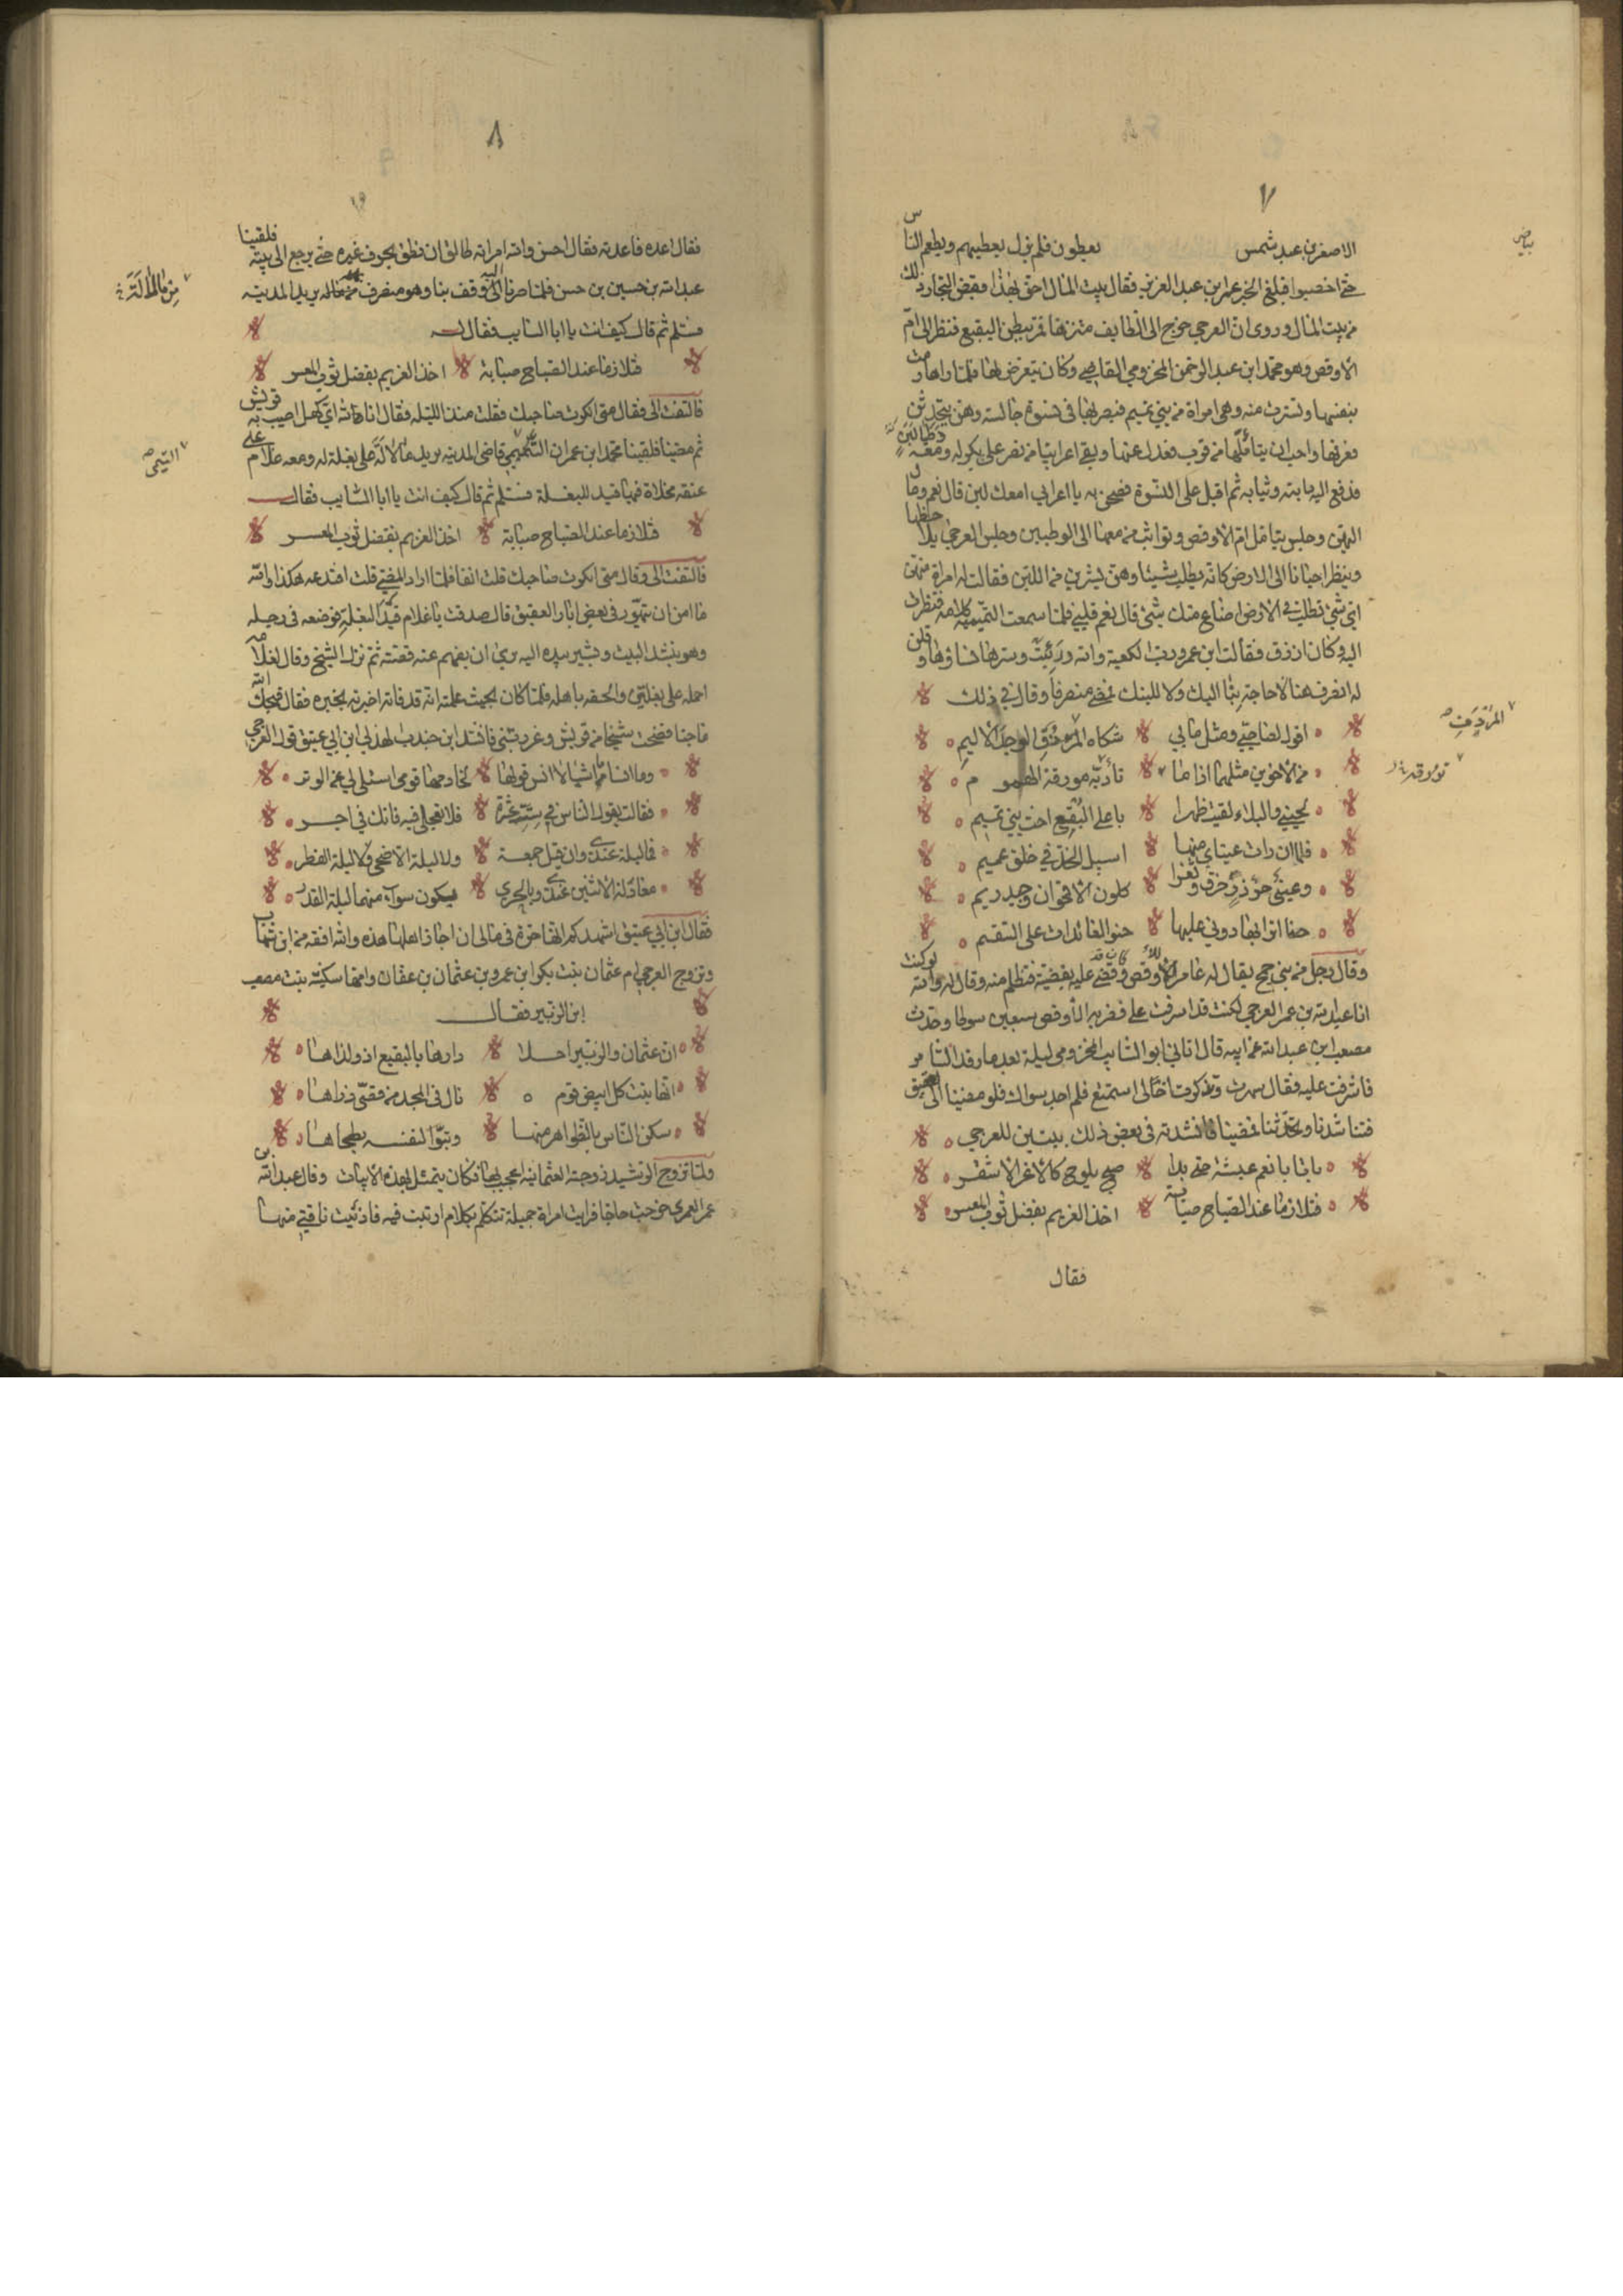 ٧
بياض
الاصغر بن عبد شمس يعطون فلم يزل يعطيهم ويطعم الناس
حتى اخصبوا فبلغ الخبر عمر بن عبد العزيز فقال بيت المال احق بهذا فقبض التجار ذلك
من بيت المال وروى ان العرجي خرج الى الطايف متنزها فمر ببطن البقيع فنظر الى ام
الاوقص وهو محمد ابن عبد الرحمن المخزومي القاضي وكان يتعرض لها فلما راها رمت
بنفسها وتسترت منه وهي امراة من بني تميم فبصر بها في نسوة جالسة وهن يتحدثن
فعرفها واحب ان يتاملها من قرب فعدل عنها ولقي اعرابيا من نصر على بكر له ومعه وطبا لبن
فدفع اليه دابته وثيابه ثم اقبل على النسوة فصحن به يا اعرابي امعك لبن قال نعم ومال
اليهن وجلس يتامل ام الاوقص وتواثب من معها الى الوطبين وجلس العرجي يلاحظها
وينظر احيانا الى الارض كانه يطلب شيئا وهن يشربن من اللبن فقالت له امراة منهن
اي شي تطلب في الارض اضاع منك شيئ قال نعم قلبي فلما سمعت التميمية كلامه فنظرت
اليه وكان ازرق فقالت ابن عمر ورب الكعبة وسترها نساؤها وقلن
له انصرف عنا لا حاجة بنا اليك ولا للبنك فمضى منصرفا وقال في ذلك
اقول لصاحبي ومثل مابي شكاه المرء ذو الوجد الاليم
المرء ذي
من الاخوين مثلهما اذا ما تأوبه مورقة الهموم
مؤرقه
لحيني والبلاء لقيت ظهرا باعلى البقيع اخت بني تميم
فلما ان رات عيناي منها اسيل الخد في خلق عميم
وعيني جوذر خرق وثغرا كلون الاقحوان وجيد ريم
حنا اترابها دوني عليها حنو العائدات على السقيم
وقال رجل من بني جمح يقال له عامر للاوقص وقضى عليه بقضية فتظلم منه وقال له والله لو كنت
انا عبد الله بن عمر العرجي لكنت قد اسرفت علي فضربه الاوقص سبعين سوطا وحدث
مصعب ابن عبد الله عن ابيه قال اتاني ابو السايب المخزومي ليلة بعد ما رقد السامر
فاشرفت عليه فقال سهرت وتذكرت اخا لي استمتع فلم اجد سواك فلو مضينا الى العقيق
فتناشدنا وتحدثنا فمضينا فانشدته في بعض ذلك بيتين للعرجي
باتا بانعم عيشة حتى بدا صبح يلوح كالاغر الاشقر
فتلازما عند الصباح صبابة اخذ الغريم بفضل ثوب المعسر
فقال
٨
فقال اعده فاعدته فقال احسن والله امراته طالق ان نطق بحرف غيره حتى يرجع الى بيته فلقينا
عبد الله بن حسين بن حسن فلما صرنا اليه وقف بنا وهو منصرف من ماله يريد المدينه
فسلم ثم قال كيف انت يا ابا السايب فقال له
فتلازما عند الصباح صبابة اخذ الغريم بفضل ثوب المعسر
فالتفت الي فقال متى انكرت صاحبك فقلت منذ الليلة فقال انا لله اي كهل اصيب به قريش
ثم مضينا فلقينا محمد ابن عمران التميمي قاضي المدينه يريد مالا له على بغلة له ومعه غلام على
التيمى
عنقه مخلاة فيها قيد البغلة فسلم ثم قال كيف انت يا ابا السايب فقال
فتلازما عند الصباح صبابة اخذ الغريم بفضل ثوب المعسر
فالتفت الي وقال متى انكرت صاحبك قلت انفا فلما اراد المضي قلت افتدعه هكذا والله
ما امن ان يتهور في بعض ابار العقيق قال صدقت يا غلام قيد البغلة فوضعه في رجله
وهو ينشد البيت ويشير بيده اليه يري ان يفهم عنه قصته ثم نزل الشيخ وقال لغلامه
احمله على بغلتي والحقه باهله فلما كان بحيث علمت انه قد فاته اخبرته بخبره فقال قبحك الله
ماجنا فضحت شيخا من قريش وغررتني فانشد ابن جندب الهذلي ابن ابي عتيق قول العرجي
وما انسا م الاشيا لا انس قولها لخادمها قومي اسئلي لي عن الوتر
فقالت يقول الناس في ست عشرة فلا تعجلي فيه فانك في اجر
فما ليلة عندي وان قيل جمعة ولا ليلة الاضحى ولا ليلة الفطر
معادلة الاثنين عندي وبالحري يكون سوآء منهما ليلة القدر
فقال ابن ابي عتيق اشهدكم انها حرة في مالي ان اجاز اهلها هذه والله افقه من ابن شهاب
وتزوج العرجي ام عثمان بنت بكير ابن عمرو بن عثمان بن عفان وامها سكينة بنت مصعب
ابن الزبير فقال
ان عثمان والزبير احلا دارها بالبقيع اذ ولداها
انها بنت كل ابيض قوم نال في المجد من قصي ذراها
سكن الناس بالظواهر منها وتبوا لنفسه بطحاها
ولما تزوج الرشيد زوجته العثمانية اعجب بها فكان يتمثل بهذه الابيات وقال عبد الله بن
عمر العمري خرجت حاجا فرايت امراة جميلة تتكلم بكلام ارتبت فيه فادنيت ناقتي منها